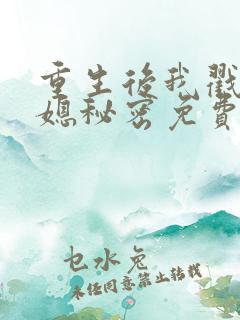 重生后我戳
媳秘密免费
乜水兔
未经同意禁止转载